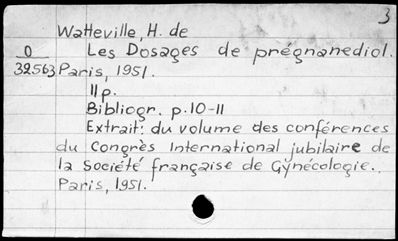 3
Watteville, H. de
O Les Dosages de prégnanediol.
32563 Paris, 1951.
11p.
Bibliogr. p.10-11
Extrait: du volume des conférences
du Congrès International jubilaire de
la Société française de Gynécologie..
Paris, 1951.